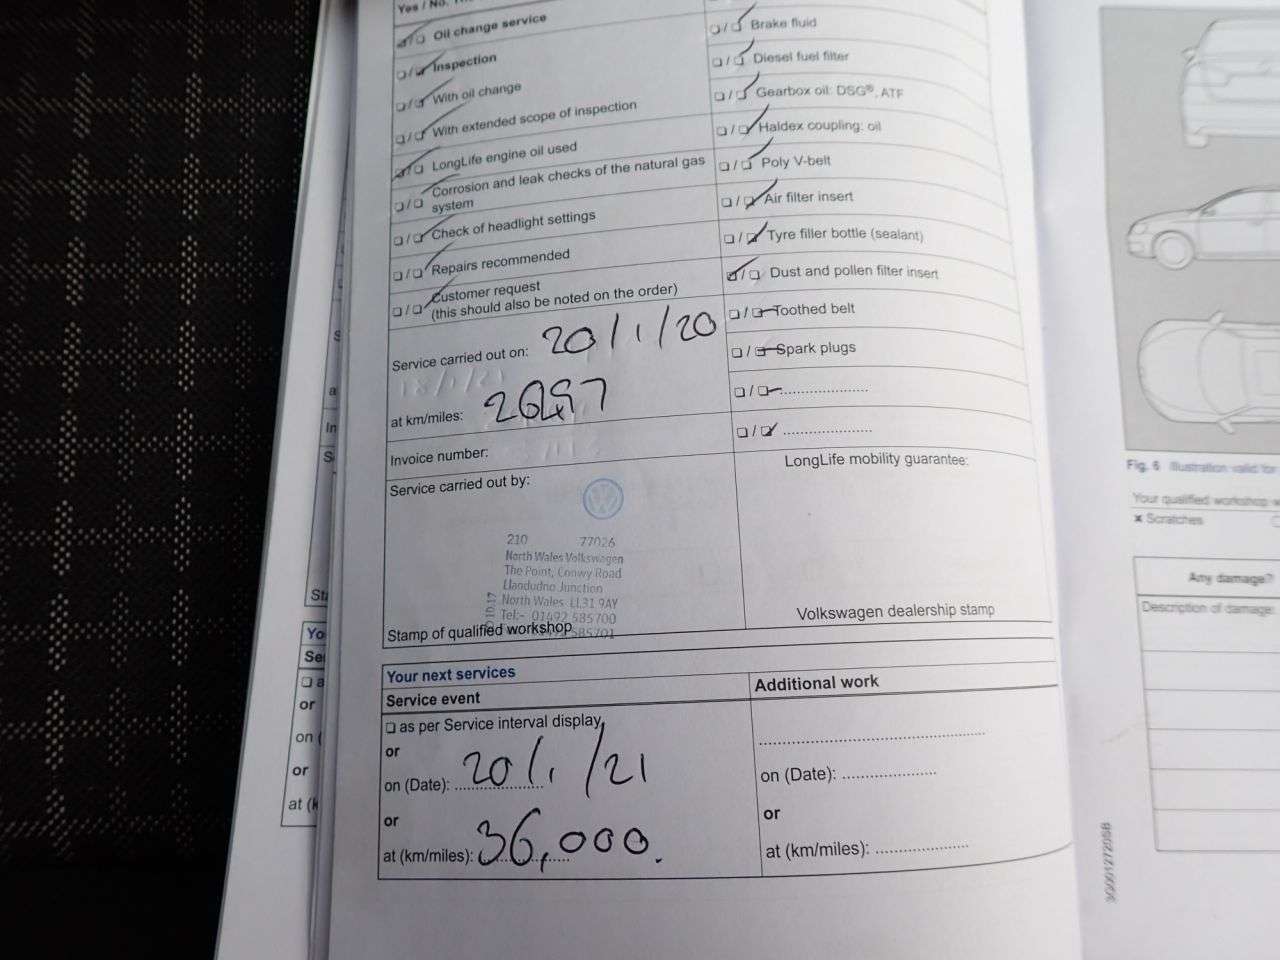 Yes / No.
Oil change service
Inspection
With oil change
With extended scope of inspection
LongLife engine oil used
Corrosion and leak checks of the natural gas
system
Check of headlight settings
Repairs recommended
Customer request
(this should also be noted on the order)
Service carried out on: 20/1/20
at km/miles:
Invoice number:
Service carried out by:
210 77026
North Wales Volkswagen
The Point, Conwy Road
Llandudno Junction
North Wales LL31 9AY
Tel:- 01492 585700
585701
Stamp of qualified workshop
Brake fluid
Diesel fuel filter
Gearbox oil: DSG®, ATF
Haldex coupling: oil
Poly V-belt
Air filter insert
Tyre filler bottle (sealant)
Dust and pollen filter insert
Toothed belt
Spark plugs
LongLife mobility guarantee:
Volkswagen dealership stamp
Your next services
Service event
as per Service interval display
or
on (Date): 20/1/21
or
at (km/miles): 36,000.
Additional work
on (Date):
or
at (km/miles):
Yo
Se
or
on (
or
at (k
Fig. 6 Illustration valid for
Your qualified workshop
Scratches
Any damage?
Description of damage: